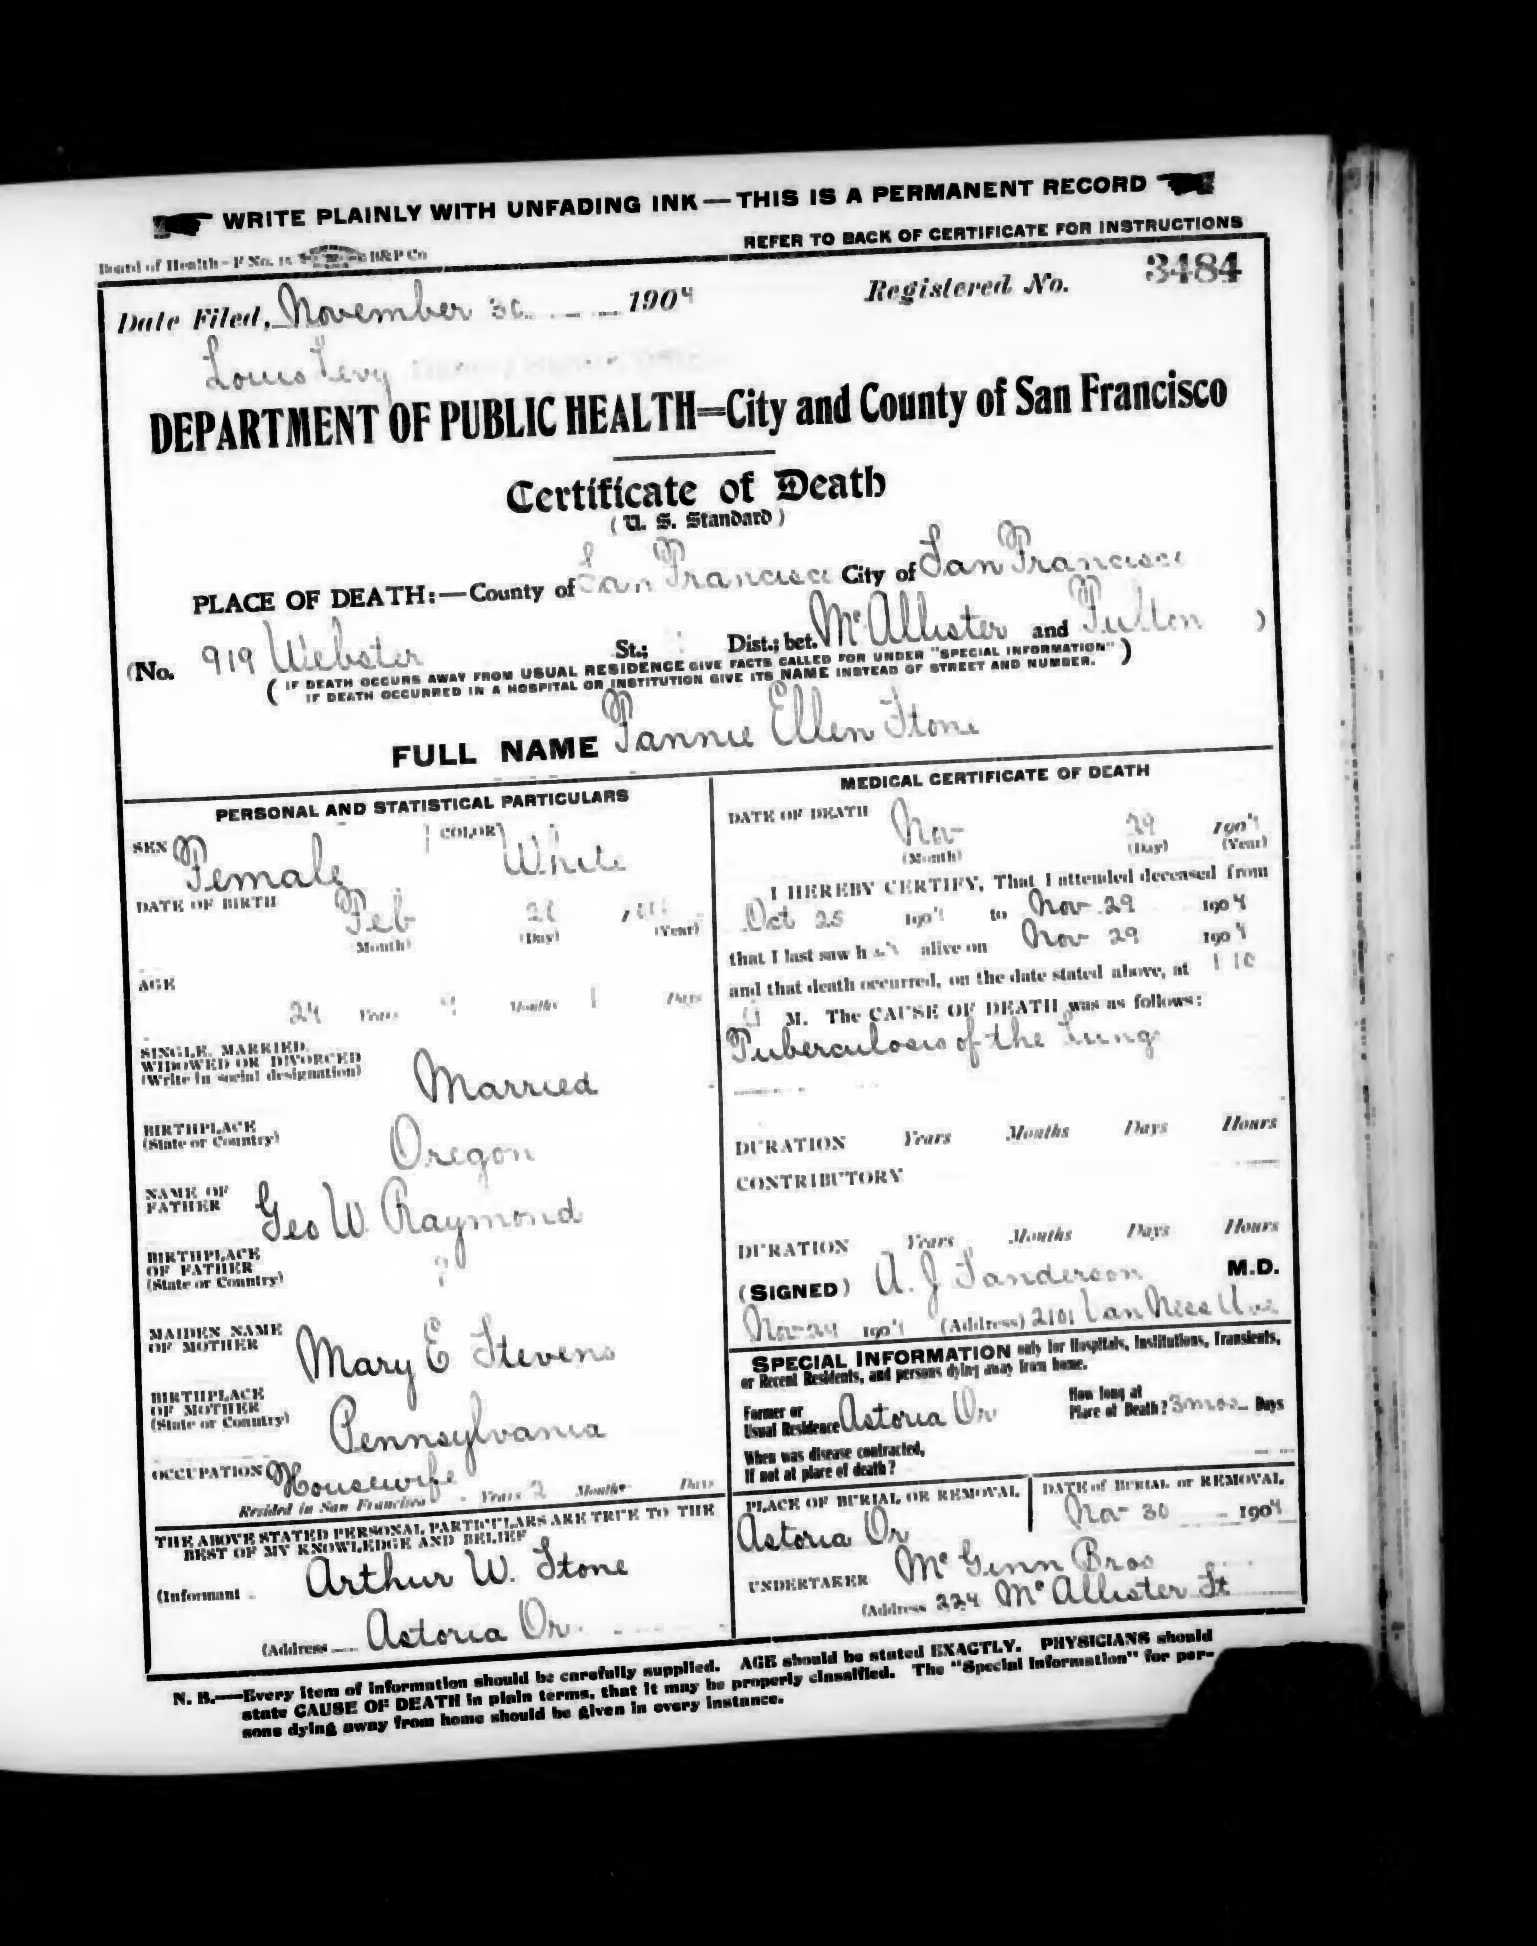 WRITE PLAINLY WITH UNFADING INK — THIS IS A PERMANENT RECORD
Board of Health—F No. 15 B&P Co
REFER TO BACK OF CERTIFICATE FOR INSTRUCTIONS
Date Filed, November 30 1904 Registered No. 3484
Louis Levy
DEPARTMENT OF PUBLIC HEALTH=City and County of San Francisco
Certificate of Death
(U. S. Standard)
PLACE OF DEATH:—County of San Francisco City of San Francisco
(No. 919 Webster St.; Dist.; bet. McAllister and Fulton )
( IF DEATH OCCURS AWAY FROM USUAL RESIDENCE GIVE FACTS CALLED FOR UNDER "SPECIAL INFORMATION" )
IF DEATH OCCURRED IN A HOSPITAL OR INSTITUTION GIVE ITS NAME INSTEAD OF STREET AND NUMBER.
FULL NAME Fannie Ellen Stone
PERSONAL AND STATISTICAL PARTICULARS
SEX Female COLOR White
DATE OF BIRTH Feb 28
(Month) (Day) (Year)
AGE
24 Years 9 Months 1 Days
SINGLE, MARRIED,
WIDOWED OR DIVORCED
(Write in social designation) Married
BIRTHPLACE
(State or Country) Oregon
NAME OF
FATHER Geo W. Raymond
BIRTHPLACE
OF FATHER
(State or Country) ?
MAIDEN NAME
OF MOTHER Mary E Stevens
BIRTHPLACE
OF MOTHER
(State or Country) Pennsylvania
OCCUPATION Housewife
Resided in San Francisco - Years 2 Months Days
THE ABOVE STATED PERSONAL PARTICULARS ARE TRUE TO THE
BEST OF MY KNOWLEDGE AND BELIEF
(Informant Arthur W. Stone
(Address Astoria Or.
MEDICAL CERTIFICATE OF DEATH
DATE OF DEATH Nov 29 1904
(Month) (Day) (Year)
I HEREBY CERTIFY, That I attended deceased from
Oct 25 1904 to Nov 29 1904
that I last saw her alive on Nov 29 1904
and that death occurred, on the date stated above, at 1 10
M. The CAUSE OF DEATH was as follows:
Tuberculosis of the Lungs
DURATION Years Months Days Hours
CONTRIBUTORY
DURATION Years Months Days Hours
(SIGNED) A. J Sanderson M.D.
Nov 29 1904 (Address) 2101 Van Ness Ave
SPECIAL INFORMATION only for Hospitals, Institutions, Transients,
or Recent Residents, and persons dying away from home.
Former or
Usual Residence Astoria Or
How long at
Place of Death? 3 mos Days
When was disease contracted,
If not at place of death?
PLACE OF BURIAL OR REMOVAL
Astoria Or
DATE of BURIAL or REMOVAL
Nov 30 1904
UNDERTAKER McGinn Bros
(Address 224 McAllister St
N. B.—Every item of information should be carefully supplied. AGE should be stated EXACTLY. PHYSICIANS should
state CAUSE OF DEATH in plain terms, that it may be properly classified. The "Special Information" for per-
sons dying away from home should be given in every instance.